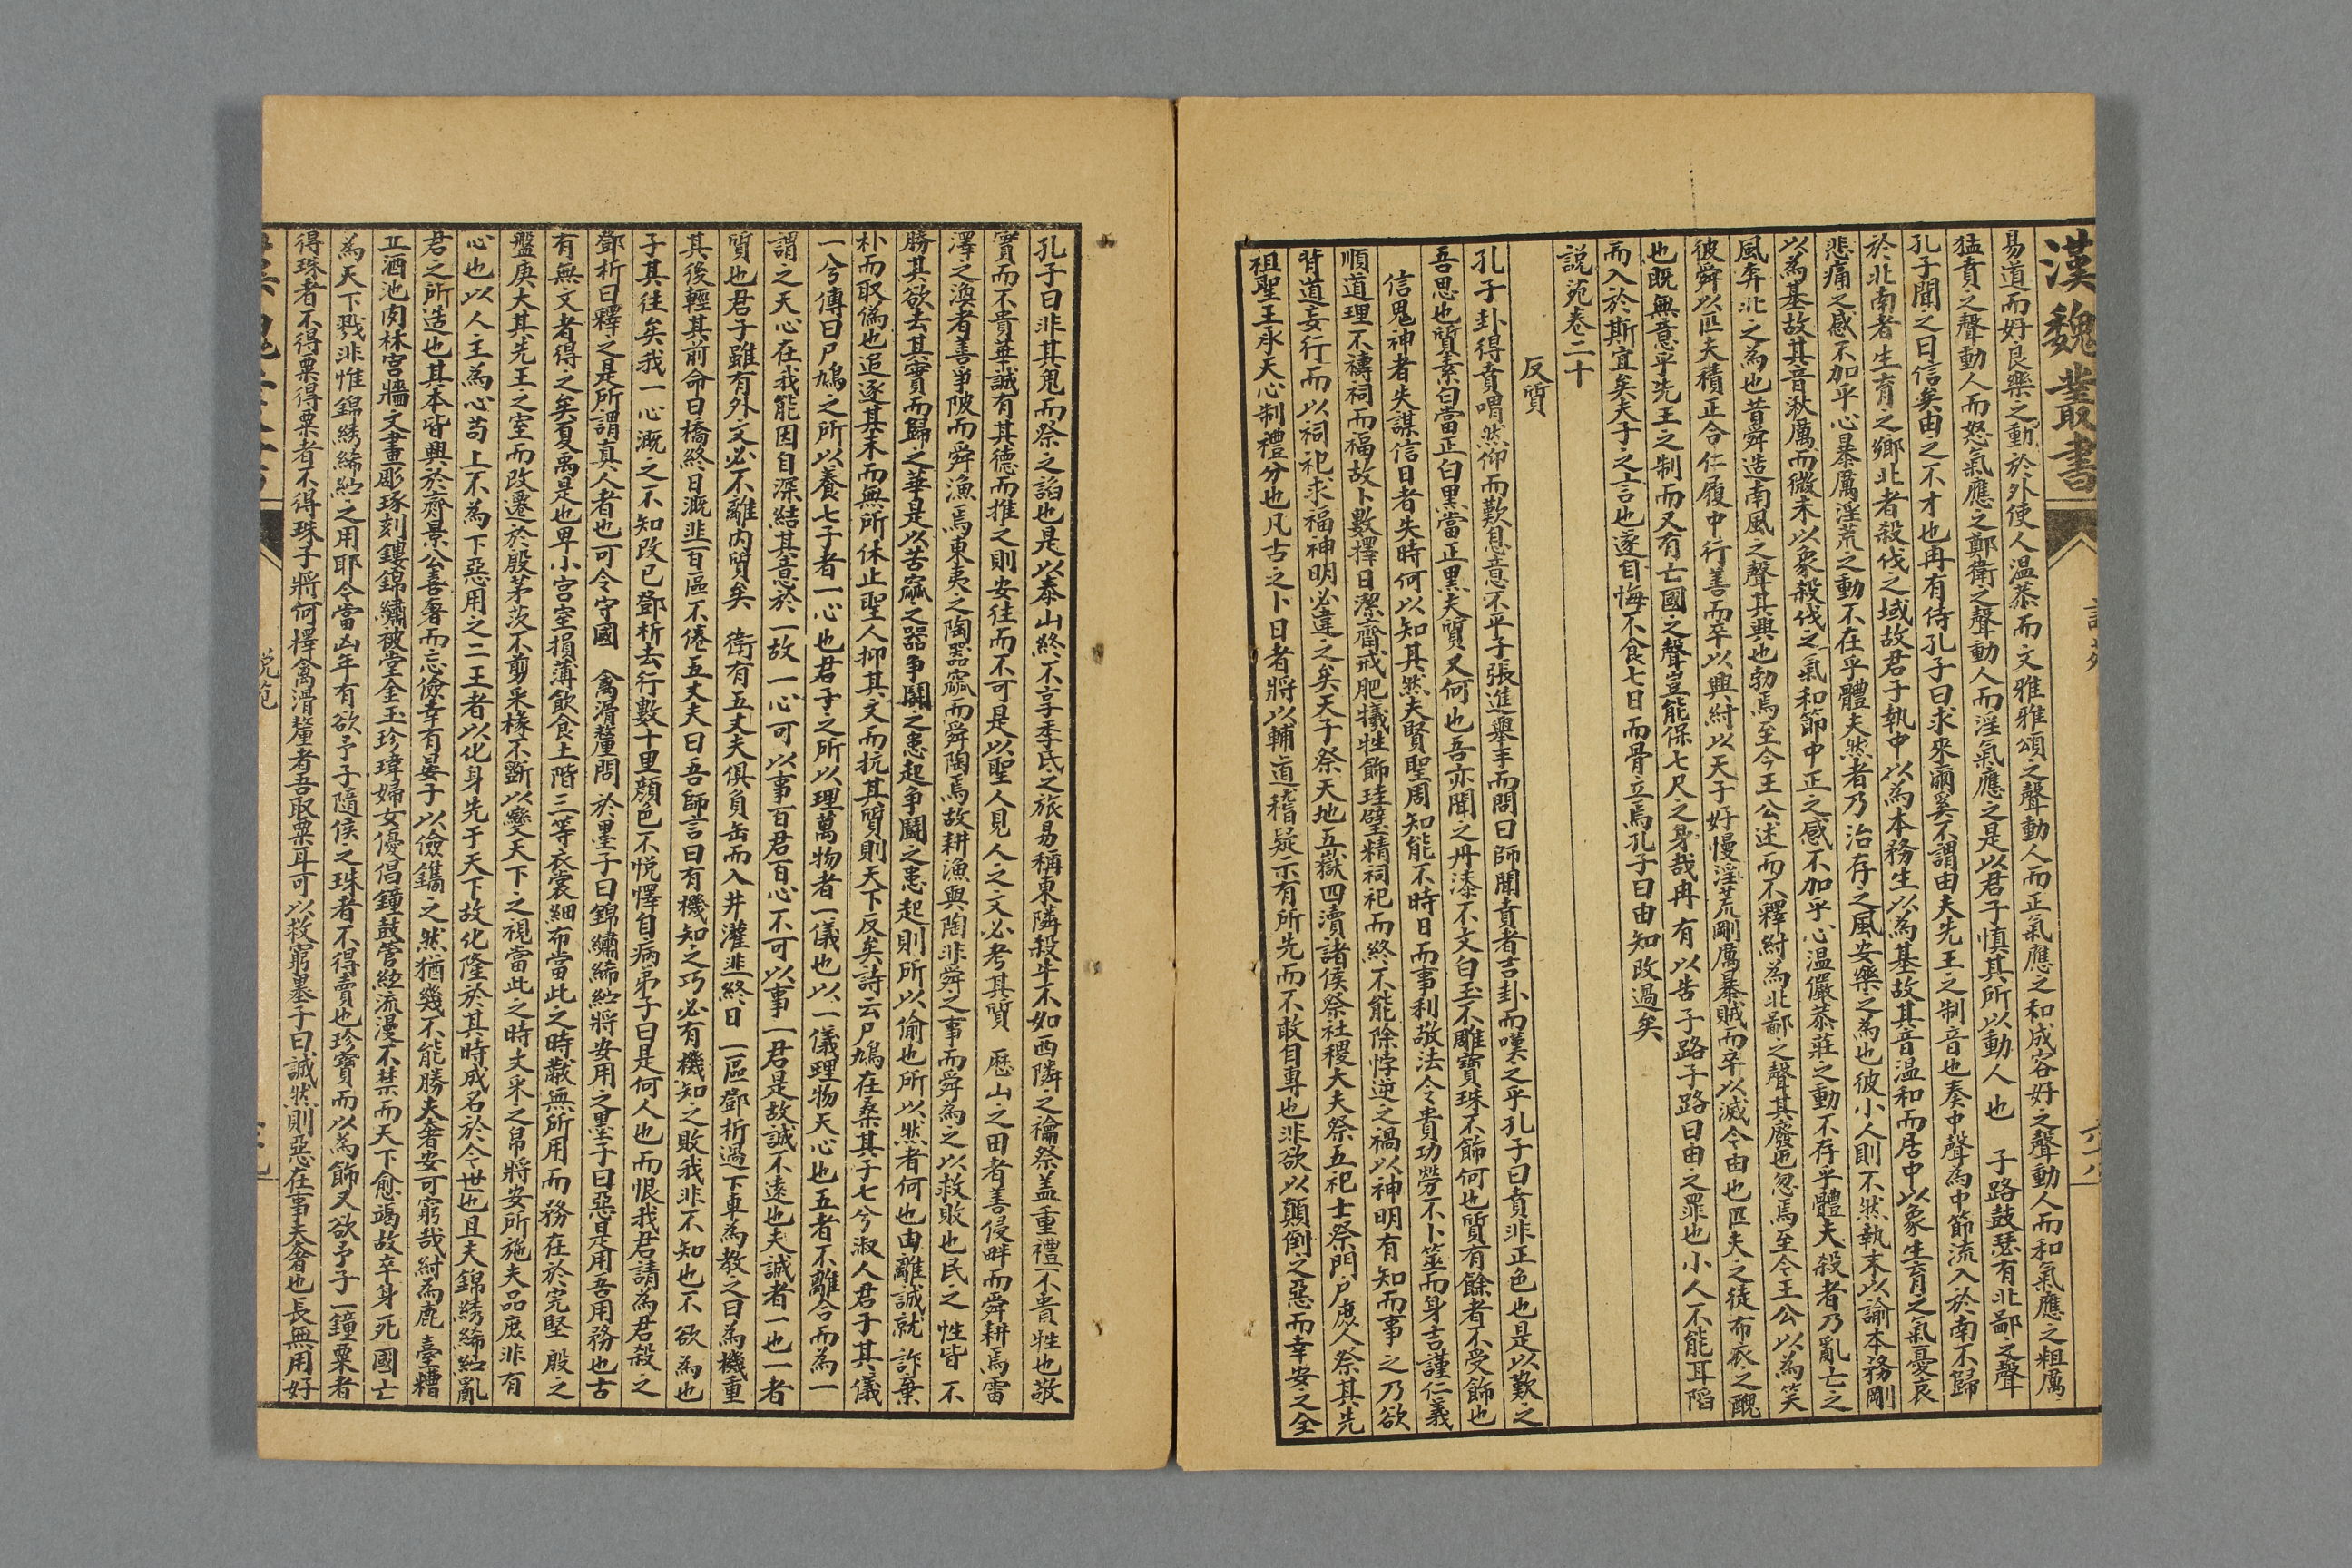 漢魏叢書
易道而好良樂之動於外使人温恭而文雅雅頌之聲動人而正氣應之和成容好之聲動人而和氣應之粗厲
猛賁之聲動人而怒氣應之鄭衛之聲動人而淫氣應之是以君子慎其所以動人也　子路鼓瑟有北鄙之聲
孔子聞之曰信矣由之不才也冉有侍孔子曰求來爾奚不謂由夫先王之制音也奏中聲為中節流入於南不歸
於北南者生育之鄉北者殺伐之域故君子執中以為本務生以為基故其音温和而居中以象生育之氣憂哀
悲痛之感不加乎心暴厲淫荒之動不在乎體夫然者乃治存之風安樂之為也彼小人則不然執末以論本務剛
以為基故其音湫厲而微末以象殺伐之氣和節中正之感不加乎心温儼恭莊之動不存乎體夫殺者乃亂亡之
風奔北之為也昔舜造南風之聲其興也勃焉至今王公述而不釋紂為北鄙之聲其廢也忽焉至今王公以為笑
彼舜以匹夫積正合仁履中行善而卒以興紂以天子好慢淫荒剛厲暴賊而卒以滅今由也匹夫之徒布衣之醜
也既無意乎先王之制而又有亡國之聲豈能保七尺之身哉冉有以告子路子路曰由之罪也小人不能耳陷
而入於斯宜矣夫子之言也遂自悔不食七日而骨立焉孔子曰由知改過矣
説苑卷二十
反質
孔子卦得賁喟然仰而歎息意不平子張進舉手而問曰師聞賁者吉卦而嘆之乎孔子曰賁非正色也是以歎之
吾思也質素白當正白黑當正黑夫質又何也吾亦聞之丹漆不文白玉不雕寶珠不飾何也質有餘者不受飾也
信鬼神者失謀信日者失時何以知其然夫賢聖周知能不時日而事利敬法令貴功勞不卜筮而身吉謹仁義
順道理不禱祠而福故卜數擇日潔齋戒肥犧牲飾珪璧精祠祀而終不能除悖逆之禍以神明有知而事之乃欲
背道妄行而以祠祀求福神明必違之矣天子祭天地五嶽四瀆諸侯祭社稷大夫祭五祀士祭門户庶人祭其先
祖聖王承天心制禮分也凡古之卜日者將以輔道稽疑示有所先而不敢自專也非欲以顛倒之惡而幸安之全
孔子曰非其鬼而祭之諂也是以泰山終不享季氏之旅易稱東隣殺牛不如西隣之禴祭盖重禮不貴牲也敬
實而不貴華誠有其德而推之則安往而不可是以聖人見人之文必考其質　歷山之田者善侵畔而舜耕焉雷
澤之漁者善爭陂而舜漁焉東夷之陶器窳而舜陶焉故耕漁與陶非舜之事而舜為之以救敗也民之性皆不
勝其欲去其實而歸之華是以苦窳之器爭鬪之患起爭鬪之患起則所以偷也所以然者何也由離誠就詐棄
朴而取偽也追逐其末而無所休止聖人抑其文而抗其質則天下反矣詩云尸鳩在桑其子七兮淑人君子其儀
一兮傳曰尸鳩之所以養七子者一心也君子之所以理萬物者一儀也以一儀理物天心也五者不離合而為一
謂之天心在我能因自深結其意於一故一心可以事百君百心不可以事一君是故誠不遠也夫誠者一也一者
質也君子雖有外文必不離内質矣　衛有五丈夫俱負缶而入井灌韭終日一區鄧析過下車為教之曰為機重
其後輕其前命曰橋終日溉韭百區不倦五丈夫曰吾師言曰有機知之巧必有機知之敗我非不知也不欲為也
子其往矣我一心溉之不知改已鄧析去行數十里顔色不悦懌自病弟子曰是何人也而恨我君請為君殺之
鄧析曰釋之是所謂真人者也可令守國　禽滑釐問於墨子曰錦繡絺紵將安用之墨子曰惡是用吾用務也古
有無文者得之矣夏禹是也卑小宮室損薄飲食土階三等衣裳細布當此之時黻無所用而務在於完堅殷之
盤庚大其先王之室而改遷於殷茅茨不剪采椽不斲以變天下之視當此之時文采之帛將安所施夫品庶非有
心也以人王為心苟上不為下惡用之二王者以化身先于天下故化隆於其時成名於今世也且夫錦綉絺紵亂
君之所造也其本皆興於齊景公喜奢而忘儉幸有晏子以儉鐫之然猶幾不能勝夫奢安可窮哉紂為鹿臺糟
丘酒池肉林宮牆文畫彫琢刻鏤錦繡被堂金玉珍瑋婦女優倡鐘鼓管絃流漫不禁而天下愈竭故卒身死國亡
為天下戮非惟錦綉絺紵之用耶今當凶年有欲予子隨侯之珠者不得賣也珍寶而以為飾又欲予子一鐘粟者
得珠者不得粟得粟者不得珠子將何擇禽滑釐者吾取粟耳可以救窮墨子曰誠然則惡在事夫奢也長無用好
説苑